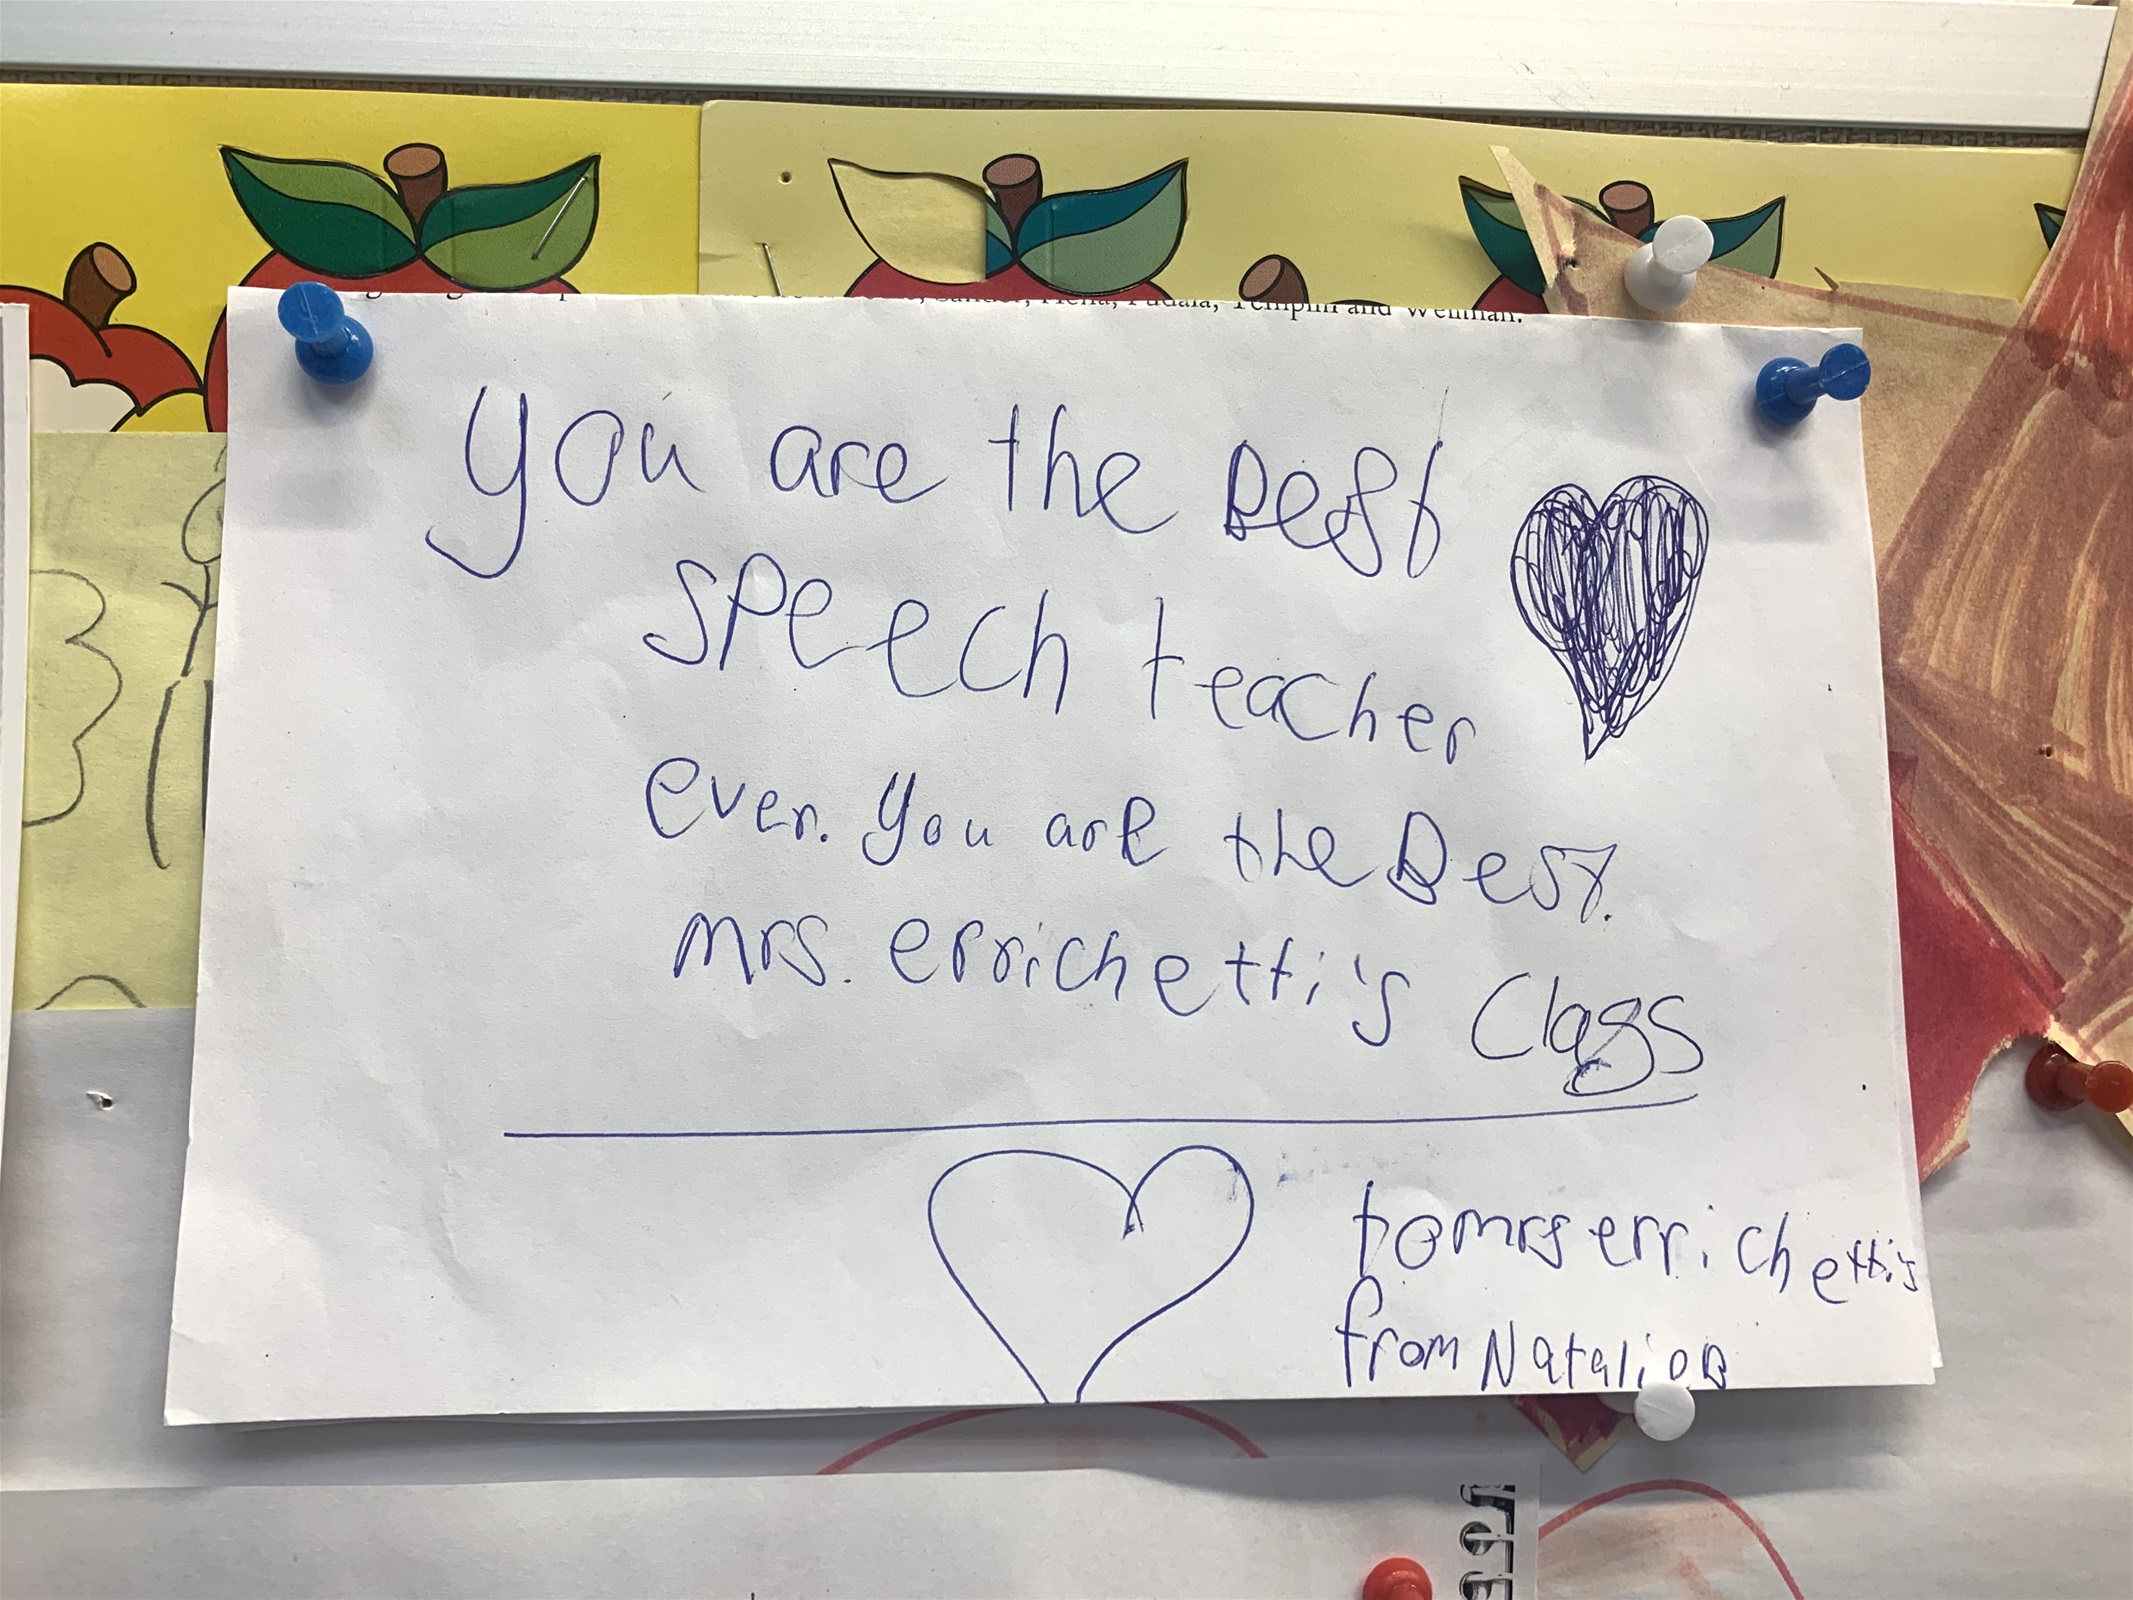 Templin and Wellman.
you are the Best
speech teacher
ever. you are the Best.
mrs. errichetti's Class
to mrs errichetti's
from Natalia B